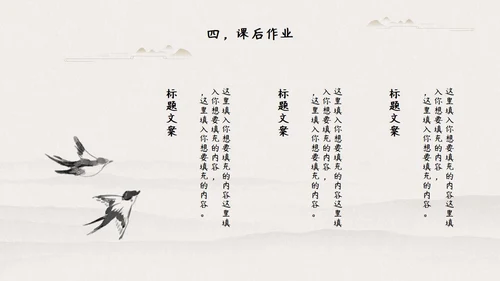 四，课后作业
标题文案
这里填入你想要填充的内容这里填
入你想要填充的内容，
，这里填入你想要填充的内容。
标题文案
这里填入你想要填充的内容这里填
入你想要填充的内容，
，这里填入你想要填充的内容。
标题文案
这里填入你想要填充的内容这里填
入你想要填充的内容，
，这里填入你想要填充的内容。